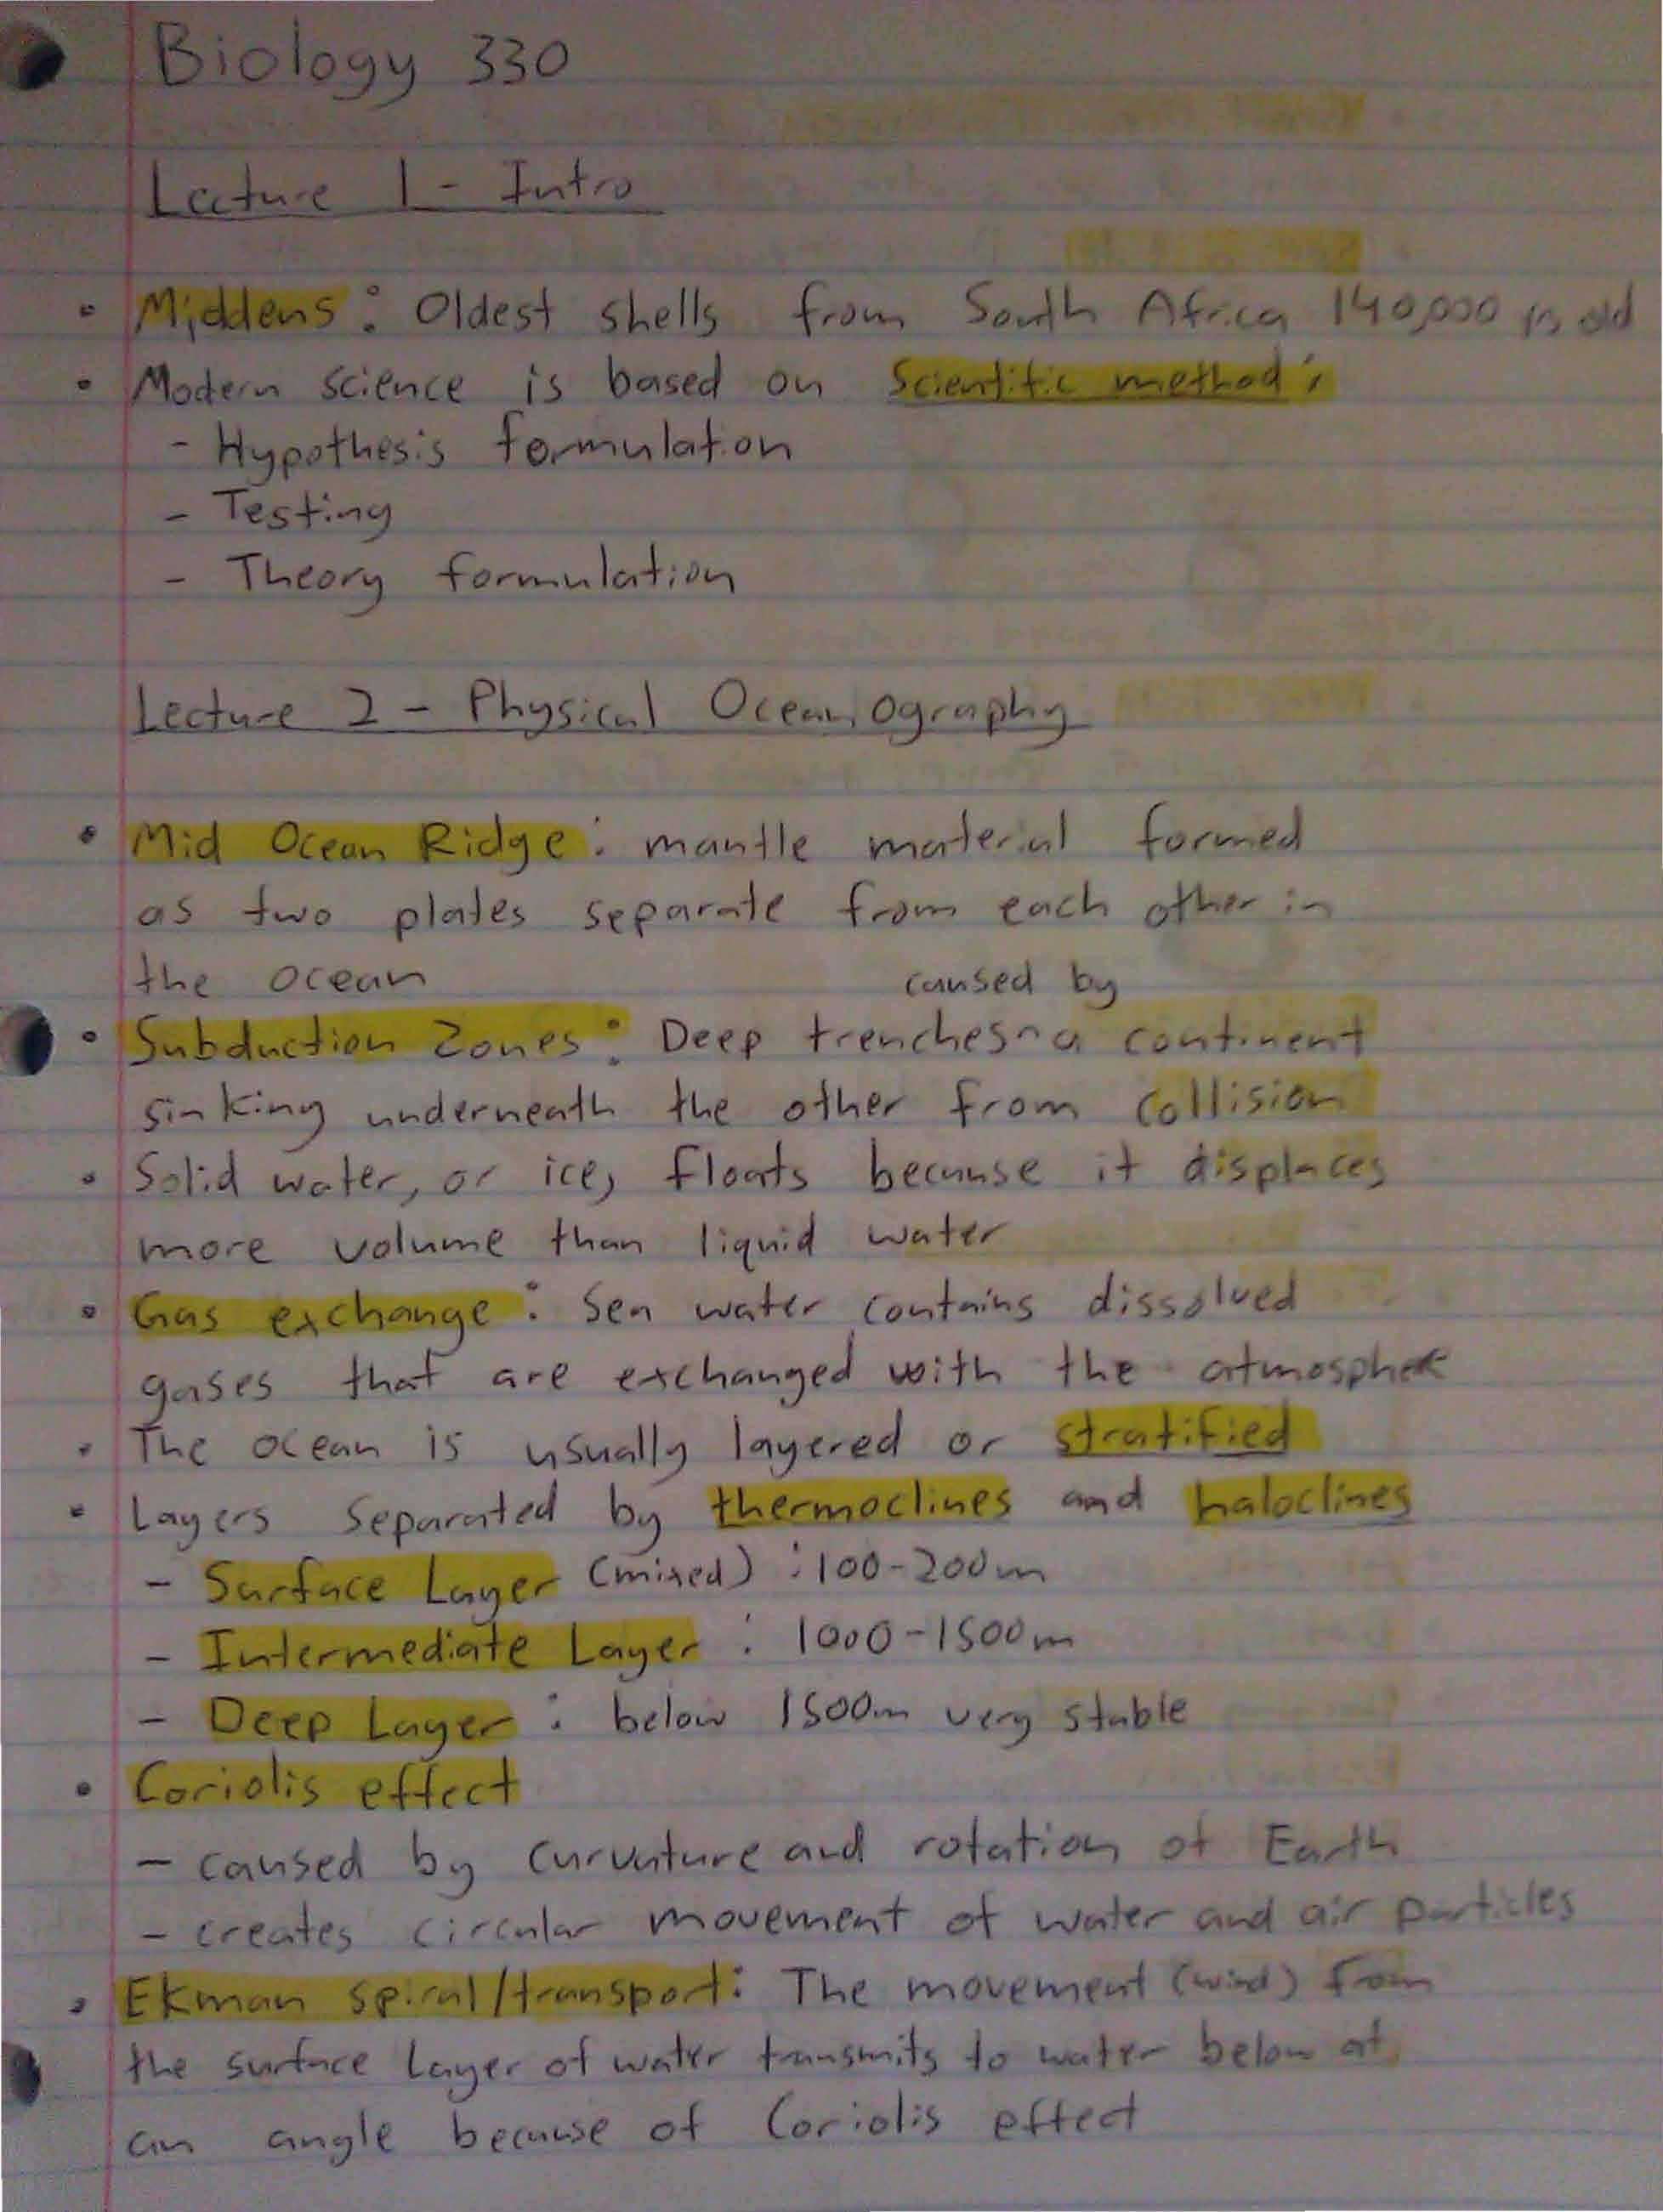 Biology 330
Lecture 1 - Intro
• Middens: Oldest shells from South Africa 140,000 yrs old
• Modern science is based on Scientific method:
- Hypothesis formulation
- Testing
- Theory formulation
Lecture 2 - Physical Oceanography
• Mid Ocean Ridge: mantle material formed
as two plates separate from each other in
the ocean
caused by
• Subduction Zones: Deep trenches^a continent
sinking underneath the other from collision
• Solid water, or ice, floats because it displaces
more volume than liquid water
• Gas exchange: Sea water contains dissolved
gases that are exchanged with the atmosphere
• The ocean is usually layered or stratified
• Layers separated by thermoclines and haloclines
- Surface Layer (mixed): 100-200m
- Intermediate Layer: 1000-1500m
- Deep Layer: below 1500m very stable
• Coriolis effect
- caused by curvature and rotation of Earth
- creates circular movement of water and air particles
• Ekman spiral/transport: The movement (wind) from
the surface layer of water transmits to water below at
an angle because of Coriolis effect